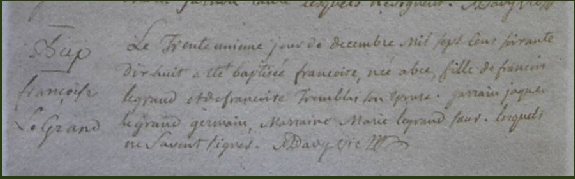 Bap
françoise
LeGrand
Le Trente unieme jour de decembre Mil sept Cens soixante
dix huit a eté baptisée francoise, née a bce, fille de francois
legrand et de francoise Tremblai son Epouse. parrain jaques
legrand germain, Marraine Marie legrand soeur. lesquels
ne savent signer.